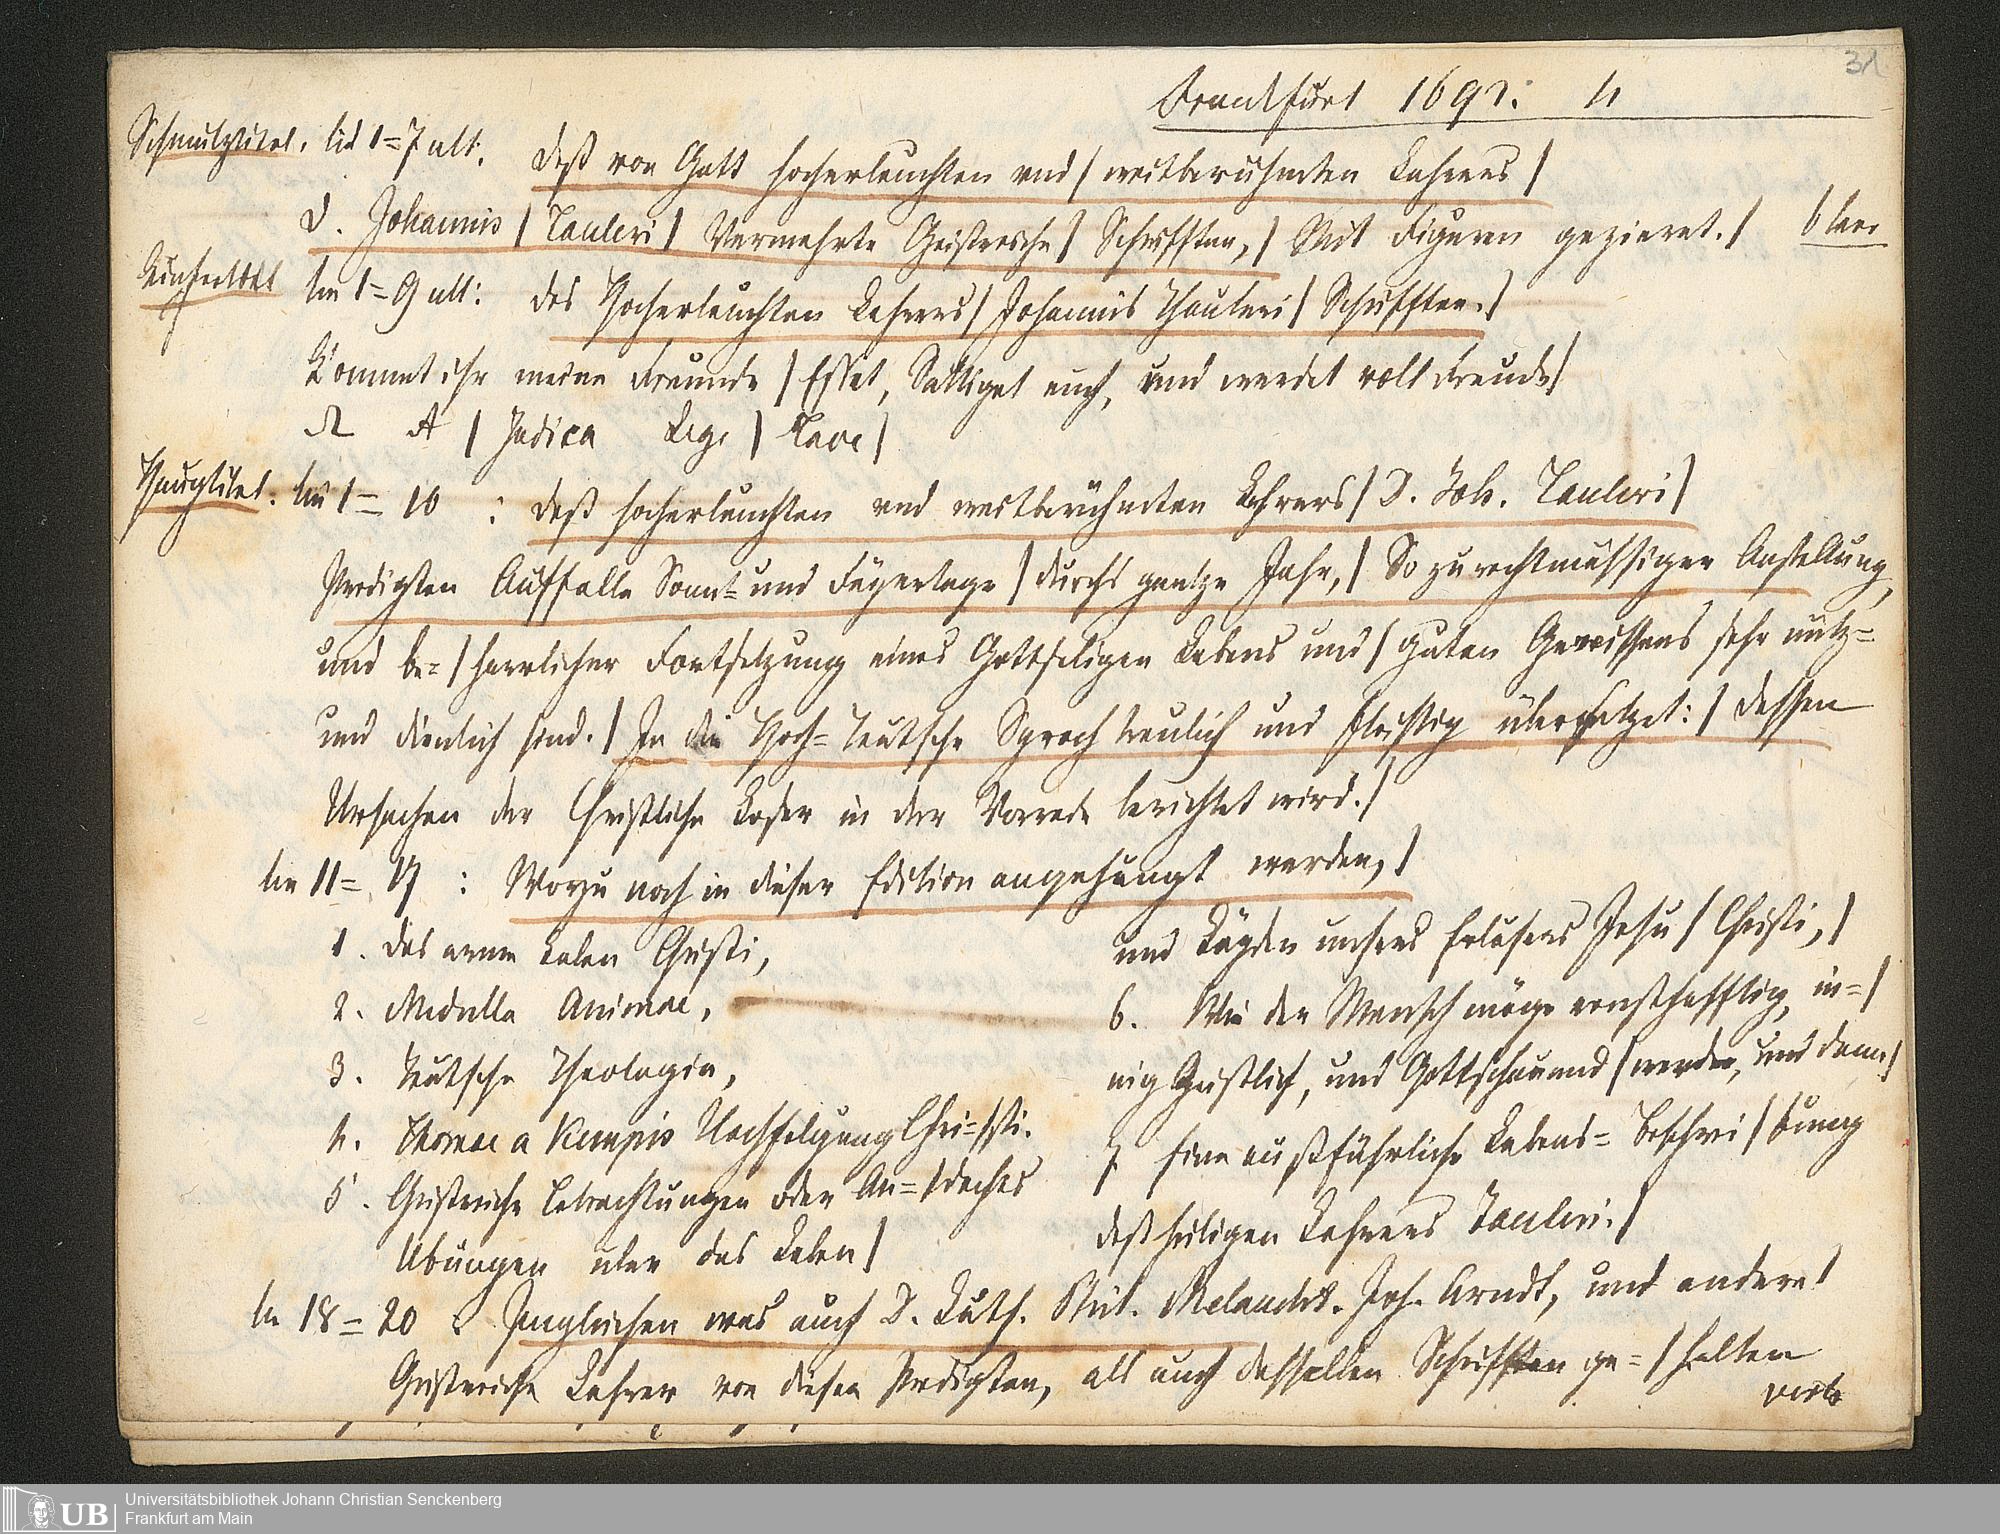 31
Frankfurt 1692. 4
Schmutztitel. lin 1=7 alt. Deß von Gott hocherleuchten vnd | weitberühmten Lehrers |
D. Johannis | Tauleri | Vermehrte Geistreiche | Schrifften, | Mit Figuren gezieret. | b leer
lin 1=9 alt: Des Hocherleuchten Lehrers | Johannis Thauleri | Schrifften. |
Kommet ihr meine Freunde | Esset, Sättiget euch, und werdet voll Freude |
Ω A | Judica Lege | Tace |
Haupttitel. lin 1=10 : Deß hocherleuchten vnd weitberühmten Lehrers | D. Joh. Tauleri |
Predigten Auff alle Sonn= und Feyertage | durchs gantze Jahr, | So zu rechtmässiger Anstellung,
und be= | harrlicher Fortsetzung eines Gottseligen Lebens und | guten Gewissens sehr nütz=
und dienlich sind. | In die Hoch=Teutsche Sprach treulich und fleissig übersetzet: | Dessen
Ursachen der Christliche Leser in der Vorrede berichtet wird. |
lin 11=17 : Worzu noch in dieser Edition angehängt werden, |
1. Das arme Leben Christi,
2. Medulla Animae,
3. Teutsche Theologia,
4. Thomae a Kempis Nachfolgung Chri= | sti.
5. Geistreiche Betrachtungen oder An= | dachts
Übungen über das Leben |
und Leyden unsers Erlösers Jesu | Christi, |
6. Wie der Mensch möge ernsthafftig, in= |
nig Geistlich, und Gottschauend | werden, und dann |
7. Eine außführliche Lebens= Beschrei | bung
deß heiligen Lehrers Tauleri. |
lin 18=20 : Jngleichen was auch D. Luth. Phil. Melancht. Joh. Arndt, und andere |
Geistreiche Lehrer von diesen Predigten, als auch desselben Schrifften ge= | halten
UB
Universitätsbibliothek Johann Christian Senckenberg
Frankfurt am Main